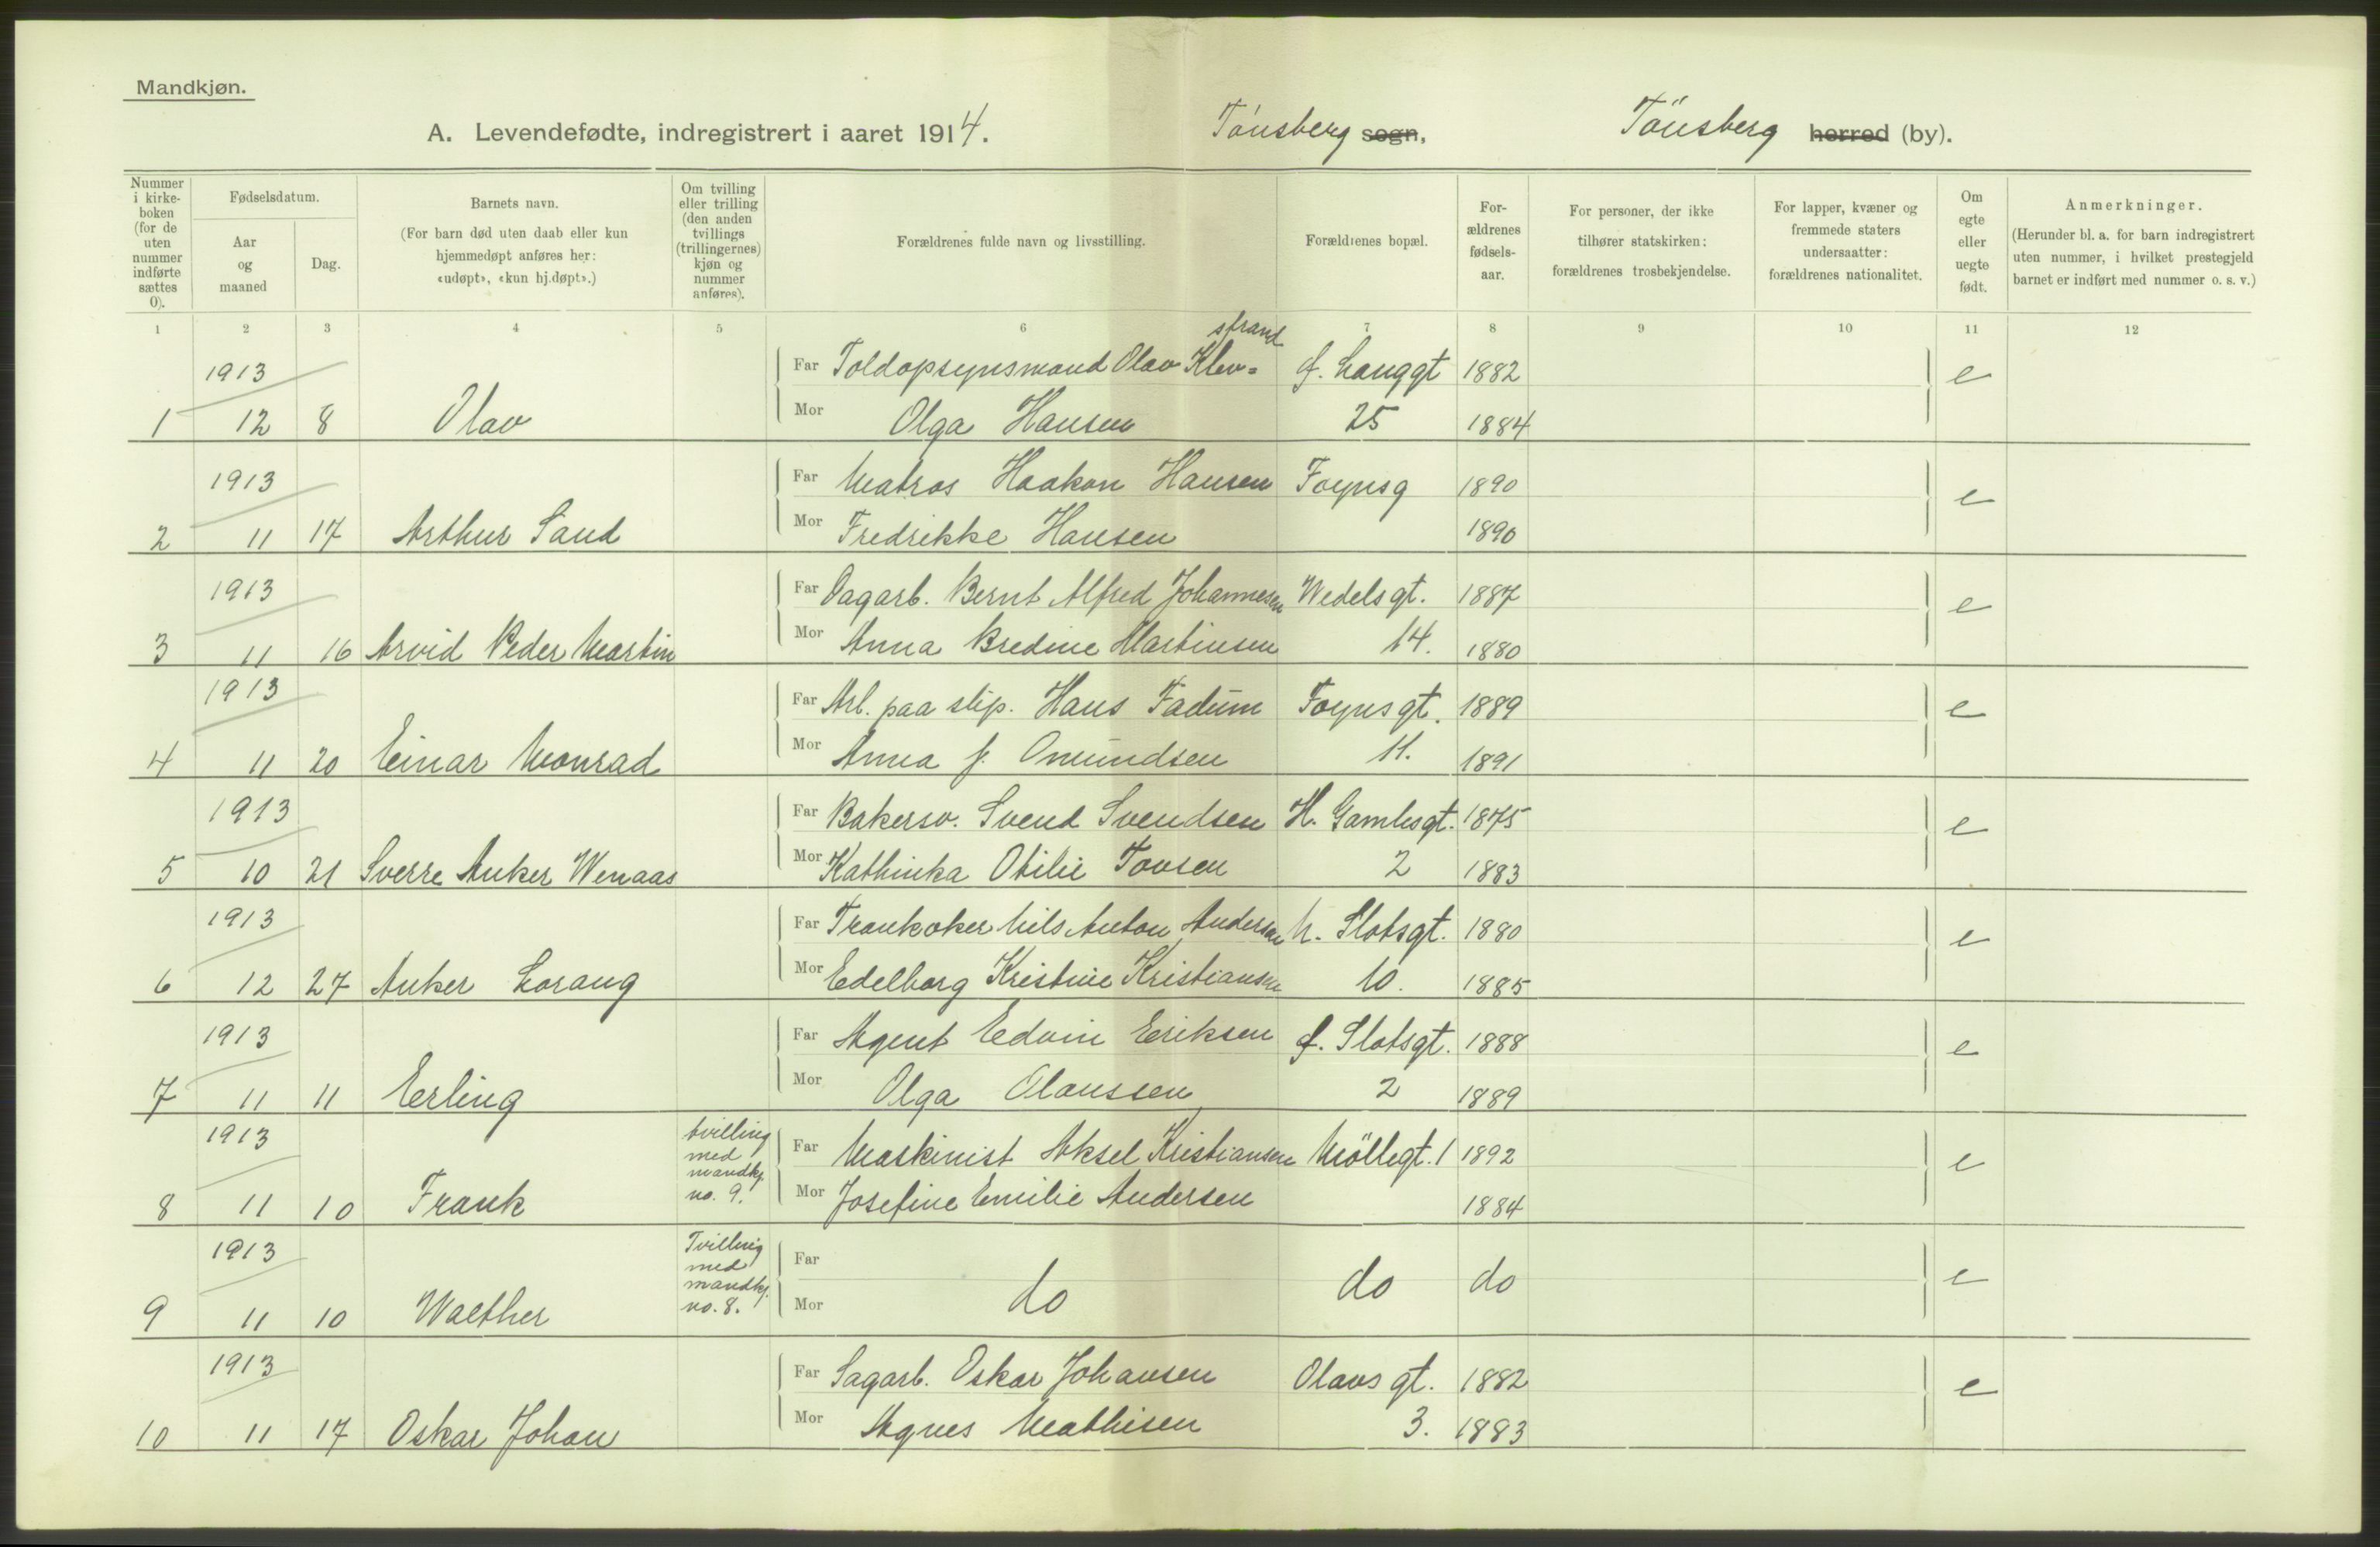 Mandkjøn.
A. Levendefødte, indregistrert i aaret 1914. Tønsberg sogn, Tönsberg herred (by).
Nummer i kirke- boken (for de uten nummer indførte sættes 0).
Fødselsdatum.
Aar og maaned
Dag.
Barnets navn.
(For barn død uten daab eller kun hjemmedøpt anføres her: «udøpt», «kun hj.døpt».)
Om tvilling eller trilling (den anden tvillings (trillingernes) kjøn og nummer anføres).
Forældrenes fulde navn og livsstilling.
Forældrenes bopæl.
For- ældrenes fødsels- aar.
For personer, der ikke tilhører statskirken: forældrenes trosbekjendelse.
For lapper, kvæner og fremmede staters undersaatter: forældrenes nationalitet.
Om egte eller uegte født.
Anmerkninger.
(Herunder bl. a. for barn indregistrert uten nummer, i hvilket prestegjeld barnet er indført med nummer o. s. v.)
1 2 3 4 5 6 7 8 9 10 11 12
strand
1913 Far Toldopsynsmand Olav Klev= f. Langgt 1882 e
1 12 8 Olav Mor Olga Hansen 25 1884
1913 Far Matros Haakon Hansen Foynsg 1890 e
2 11 17 Arthur Sand Mor Fredrikke Hansen 1890
1913 Far Dagarb. Bernt Alfred Johannesen Wedelsgt. 1887 e
3 11 16 Arvid Peder Martin Mor Anna Bredine Martinsen 14. 1880
1913 Far Arb. paa slip. Hans Fadum Foynsgt. 1889 e
4 11 20 Einar Monrad Mor Anna J. Omundsen 11. 1891
1913 Far Bakersv. Svend Svendsen H. Gamlesgt. 1875 e
5 10 21 Sverre Anker Wenaas Mor Kathinka Otilie Tovsen 2 1883
1913 Far Trankoker Nils Anton Andersen N. Slotsgt. 1880 e
6 12 27 Anker Lorang Mor Edelborg Kristine Kristiansen 10. 1885
1913 Far Agent Edvin Eriksen f. Slotsgt. 1888 e
7 11 11 Erling Mor Olga Olaussen 2 1889
1913 tvilling med mandkj. no. 9. Far Maskinist Aksel Kristiansen Möllegt. 1 1892 e
8 11 10 Frank Mor Josefine Emilie Andersen 1884
1913 Tvilling med mandkj. no. 8. Far do do do e
9 11 10 Walther Mor
1913 Far Sagarb. Oskar Johansen Olavs gt. 1882 e
10 11 17 Oskar Johan Mor Agnes Mathisen 3. 1883